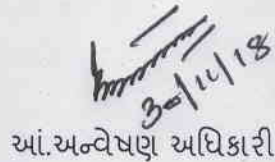 30/11/18
આં.અન્વેષણ અધિકારી